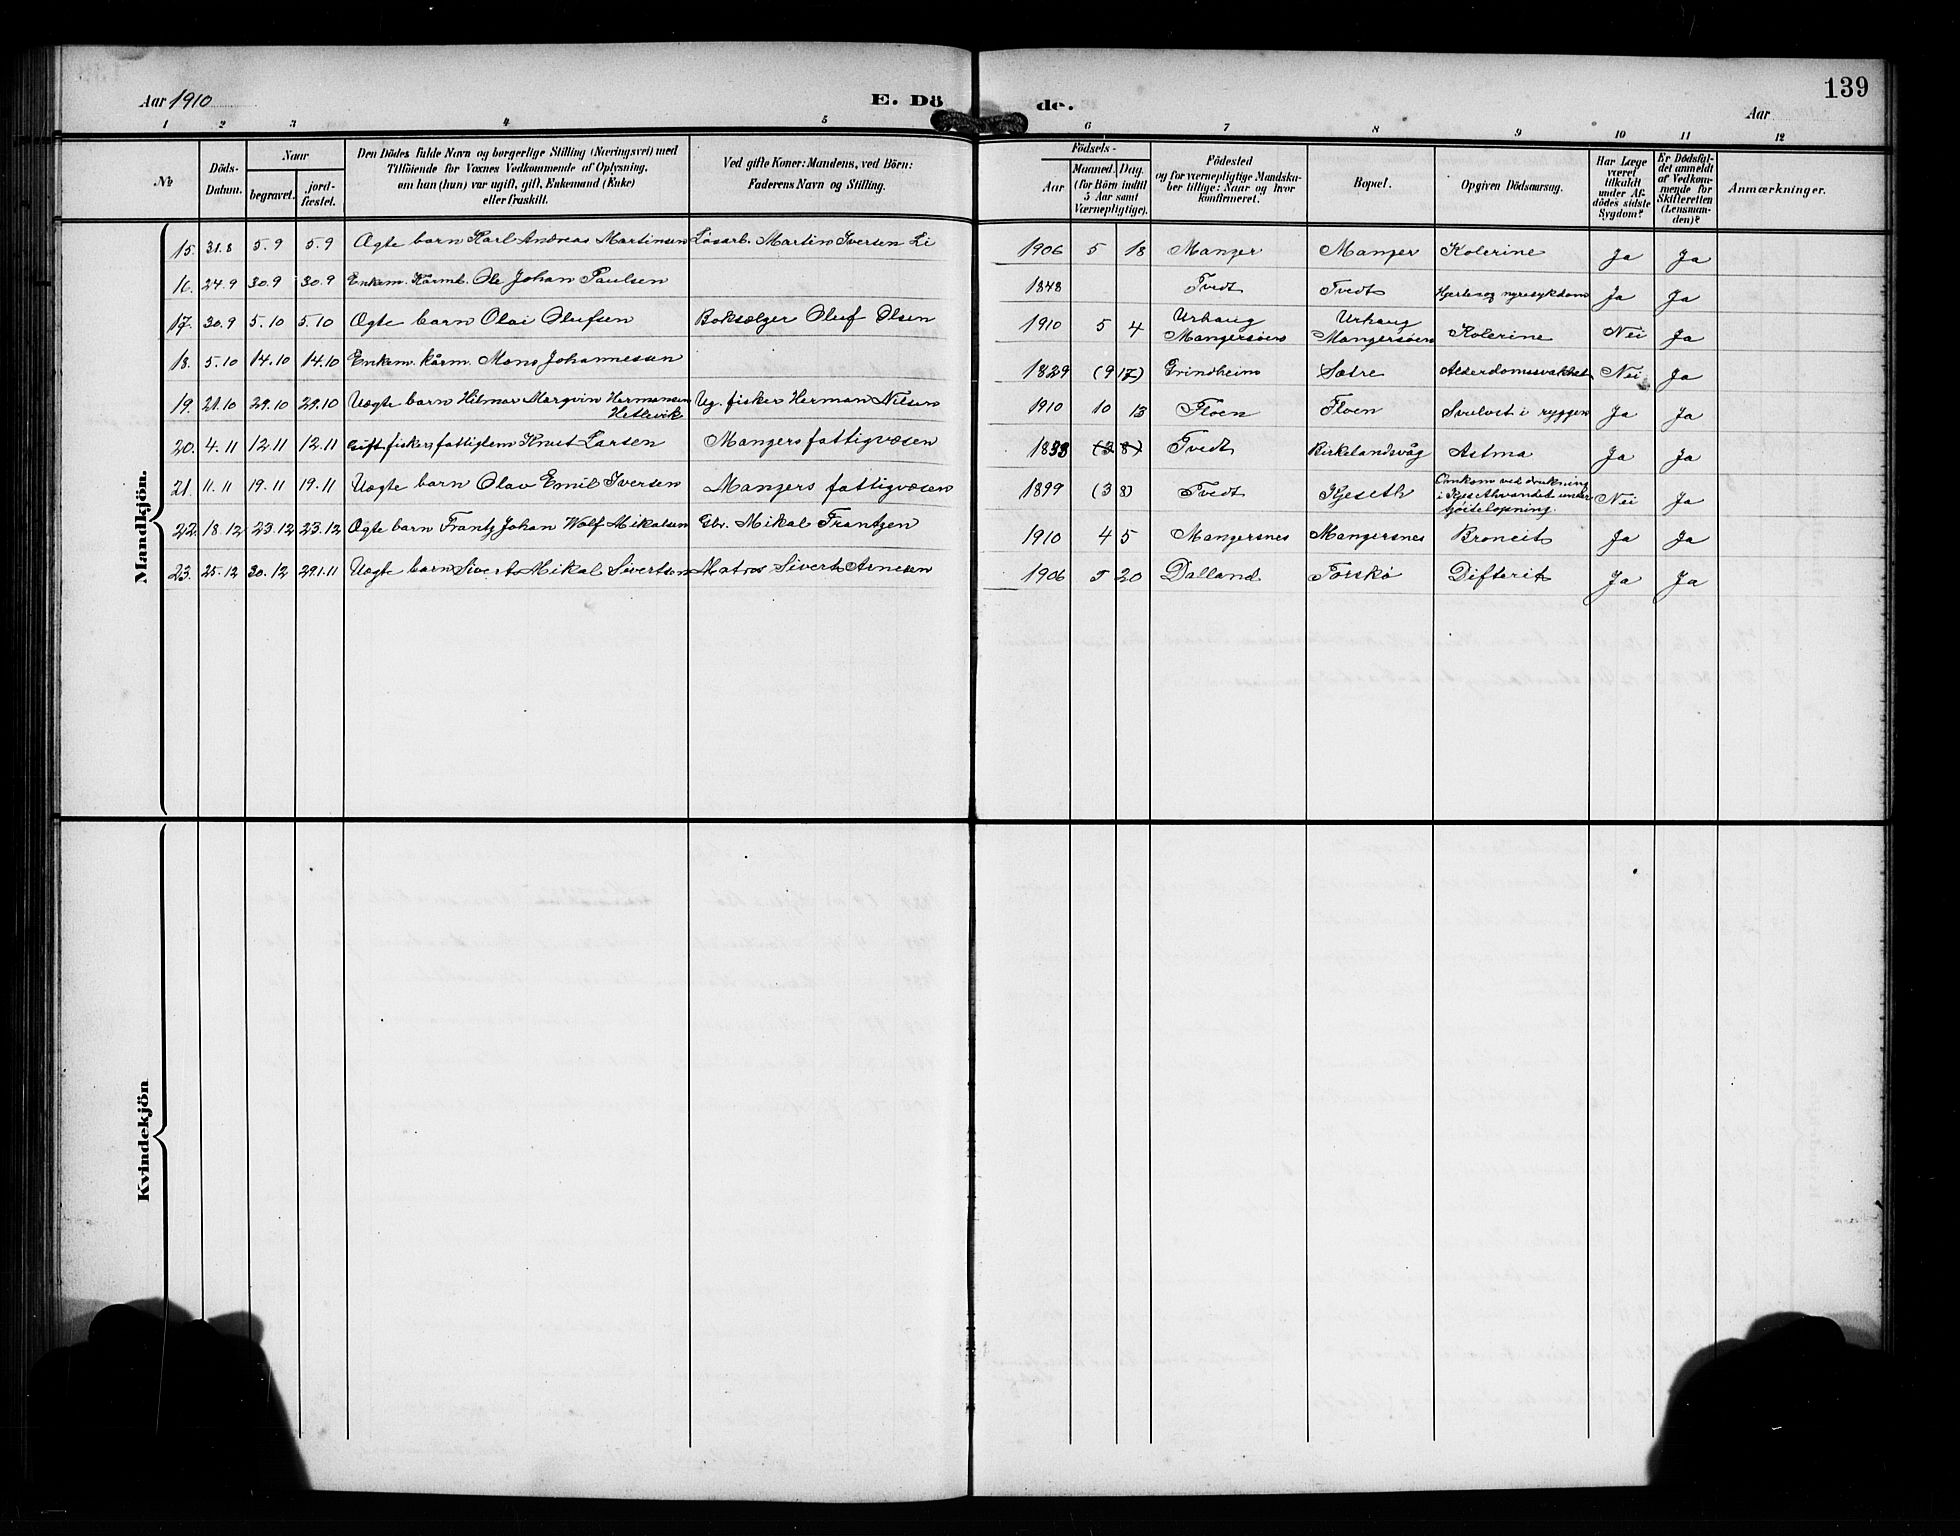 139
Aar 1910
E. Dö
de.
Aar
1 2 3 4 5 6 7 8 9 10 11 12
№
Döds-
Datum.
Naar
begravet.
jord-
fæstet.
Den Dödes fulde Navn og borgerlige Stilling (Næringsvei) med
Tilföiende for Voxnes Vedkommende af Oplysning,
om han (hun) var ugift, gift, Enkemand (Enke)
eller fraskilt.
Ved gifte Koner: Mandens, ved Börn:
Faderens Navn og Stilling.
Födsels-
Aar
Maaned. Dag.
(for Börn indtil
5 Aar samt
Værnepligtige).
Födested
og for værnepligtige Mandska-
ber tillige: Naar og hvor
konfirmeret.
Bopæl.
Opgiven Dödsaarsag.
Har Læge
været
tilkaldt
under Af-
dödes sidste
Sygdom?
Er Dödsfal-
det anmeldt
af Vedkom-
mende for
Skifteretten
(Lensman-
den)?
Anmærkninger.
Mandkjön.
15. 31.8 5.9 5.9 Ægte barn Karl Andreas Martinsen Løsarb. Martin Iversen Li 1906 5 18 Manger Manger Kolerine Ja Ja
16. 24.9 30.9 30.9 Enkem. Kårmd. Ole Johan Paulsen 1848 Tvedt Tvedt Hjerte og nyresykdom Ja Ja
17. 30.9 5.10 5.10 Ægte barn Olai Olufsen Boksælger Oluf Olsen 1910 5 4 Urhaug Mangersøen Urhaug Mangersøen Kolerine Nei Ja
18. 5.10 14.10 14.10 Enkem. kårm. Mons Johannessen 1829 (9 17) Grindheim Sætre Alderdomssvakhet Nei Ja
19. 21.10 29.10 29.10 Uægte barn Hilmar Margvin Hermansen Hetlevik Ug. fisker Herman Nilsen 1910 10 13 Floen Floen Svulvst i ryggen Ja Ja
20. 4.11 12.11 12.11 Gift fisker, fattiglem Knut Larsen Mangers fattigvæsen 1838 (3 8) Tvedt Birkelandsvåg Astma Ja Ja
21. 11.11 19.11 19.11 Uægte barn Olav Emil Iversen Mangers fattigvæsen 1899 (3 8) Tvedt Kjeseth Omkom ved drukning i Kjesethvandet under skøiteløpning. Nei Ja
22. 18.12 23.12 23.12 Ægte barn Frantz Johan Wolf Mikalsen Gbr. Mikal Frantzen 1910 4 5 Mangersnes Mangersnes Broncit Ja Ja
23. 25.12 30.12 29.1.11 Uægte barn Mikal Sivertsen Matros Sivert Arnesen 1906 5 20 Dalland Toskø Difterit Ja Ja
Kvindekjön